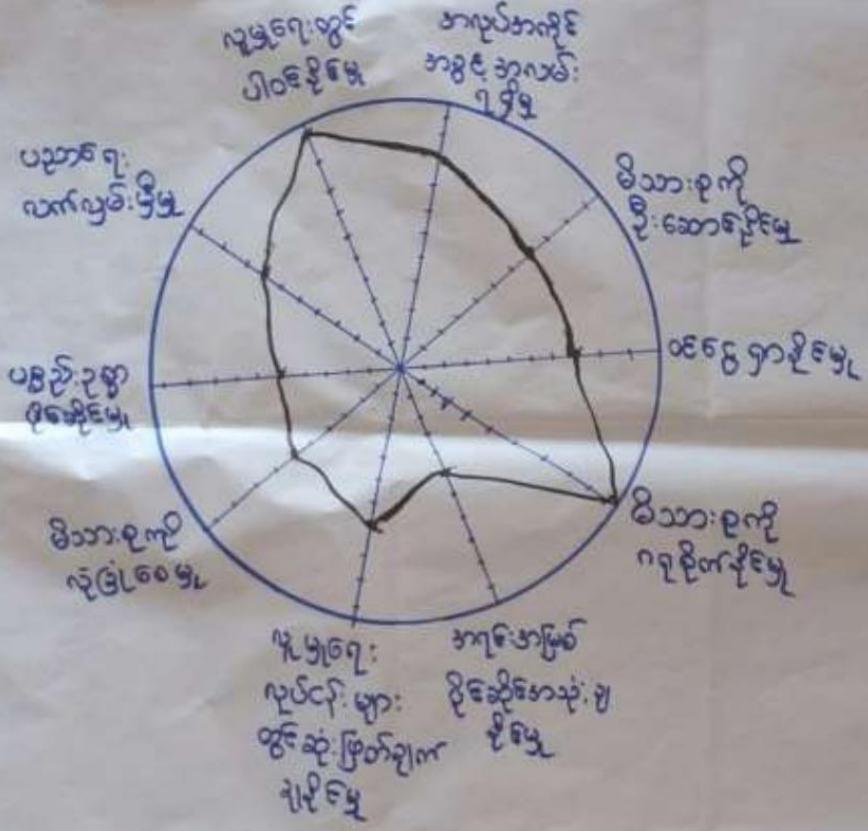 လူမှုရေးတွင်
ပါဝင်နိုင်မှု
အလုပ်အကိုင်
အခွင့်အလမ်း
ရရှိမှု
မိသားစုကို
ဦးဆောင်နိုင်မှု
ဝင်ငွေရှာနိုင်မှု
မိသားစုကို
ဂရုစိုက်နိုင်မှု
အရင်းအမြစ်
ပိုင်ဆိုင်အသုံးချ
နိုင်မှု
လူမှုရေး
လုပ်ငန်းများ
တွင်ဆုံးဖြတ်ချက်
ချနိုင်မှု
မိသားစုကို
လုံခြုံစေမှု
ပစ္စည်းဥစ္စာ
ပိုင်ဆိုင်မှု
ပညာရေး
လက်လှမ်းမှီမှု